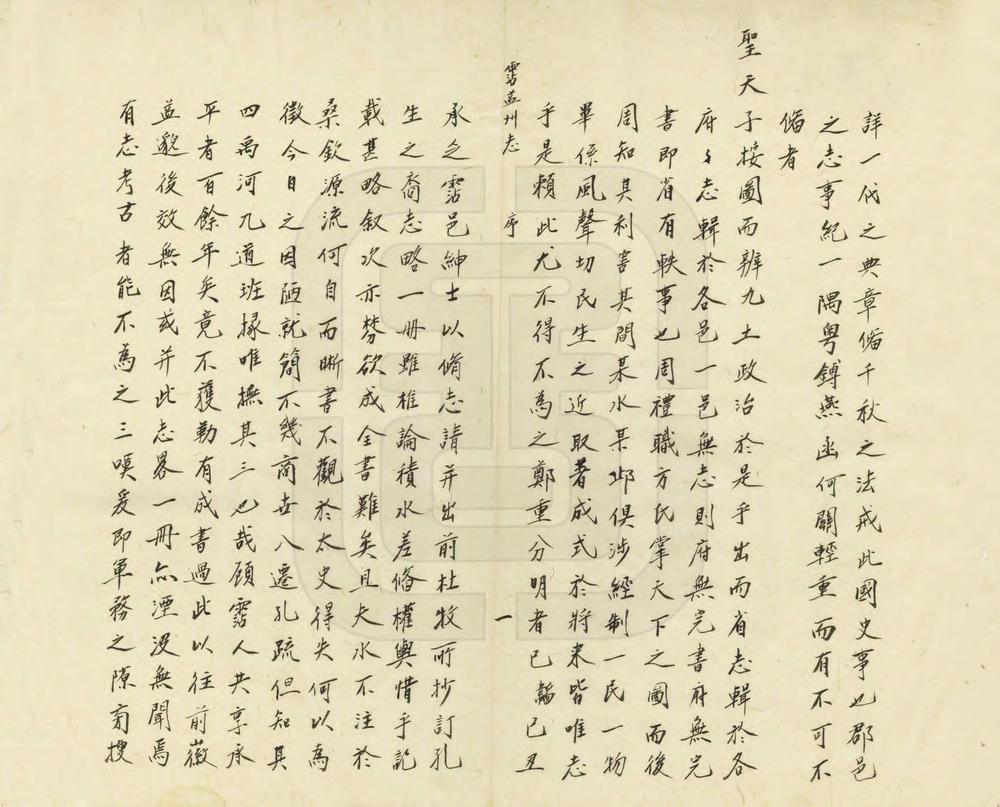 詳一代之典章備千秋之法戒此國史事也郡邑
之志事紀一隅粤鎛燕函何關輕重而有不可不
偹者
聖天子按圖而辨九土政治於是乎出而省志輯於各
府〻志輯於各邑一邑無志則府無完書府無完
書即省有軼事也周禮職方氏掌天下之圖而後
周知其利害其間某水某邱俱涉經制一民一物
畢係風聲切民生之近取著成式於將来皆唯志
乎是賴此尤不得不為之鄭重分明者已韜已丑
霑益州志 序 一
承乏霑邑紳士以脩志請并出前杜牧所抄訂孔
生之裔志略一册雖椎論積水差偹權輿惜乎記
載甚略叙次亦棼欲成全書難矣且大水不注於
桑欽源流何自而晰書不觀於太史得失何以為
徵今日之因陋就簡不幾商世八遷孔疏但知其
四禹河九道班掾唯撫其三也哉顧霑人共享承
平者百餘年矣竟不獲勒有成書過此以往前徽
益邈後效無因或并此志畧一冊亦湮没無聞焉
有志考古者能不為之三嘆爰即軍務之隙商搜